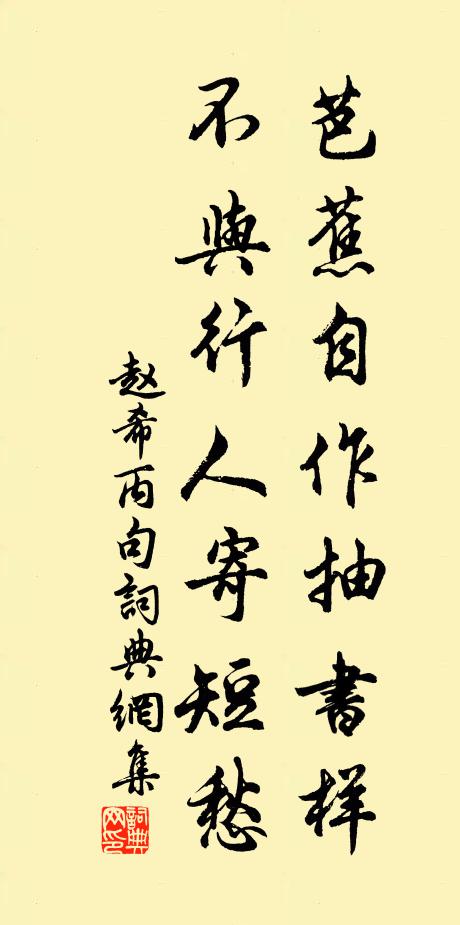 芭蕉自作抽書样
不與行人寄短愁
赵希丙句詞典網集
詞典网印